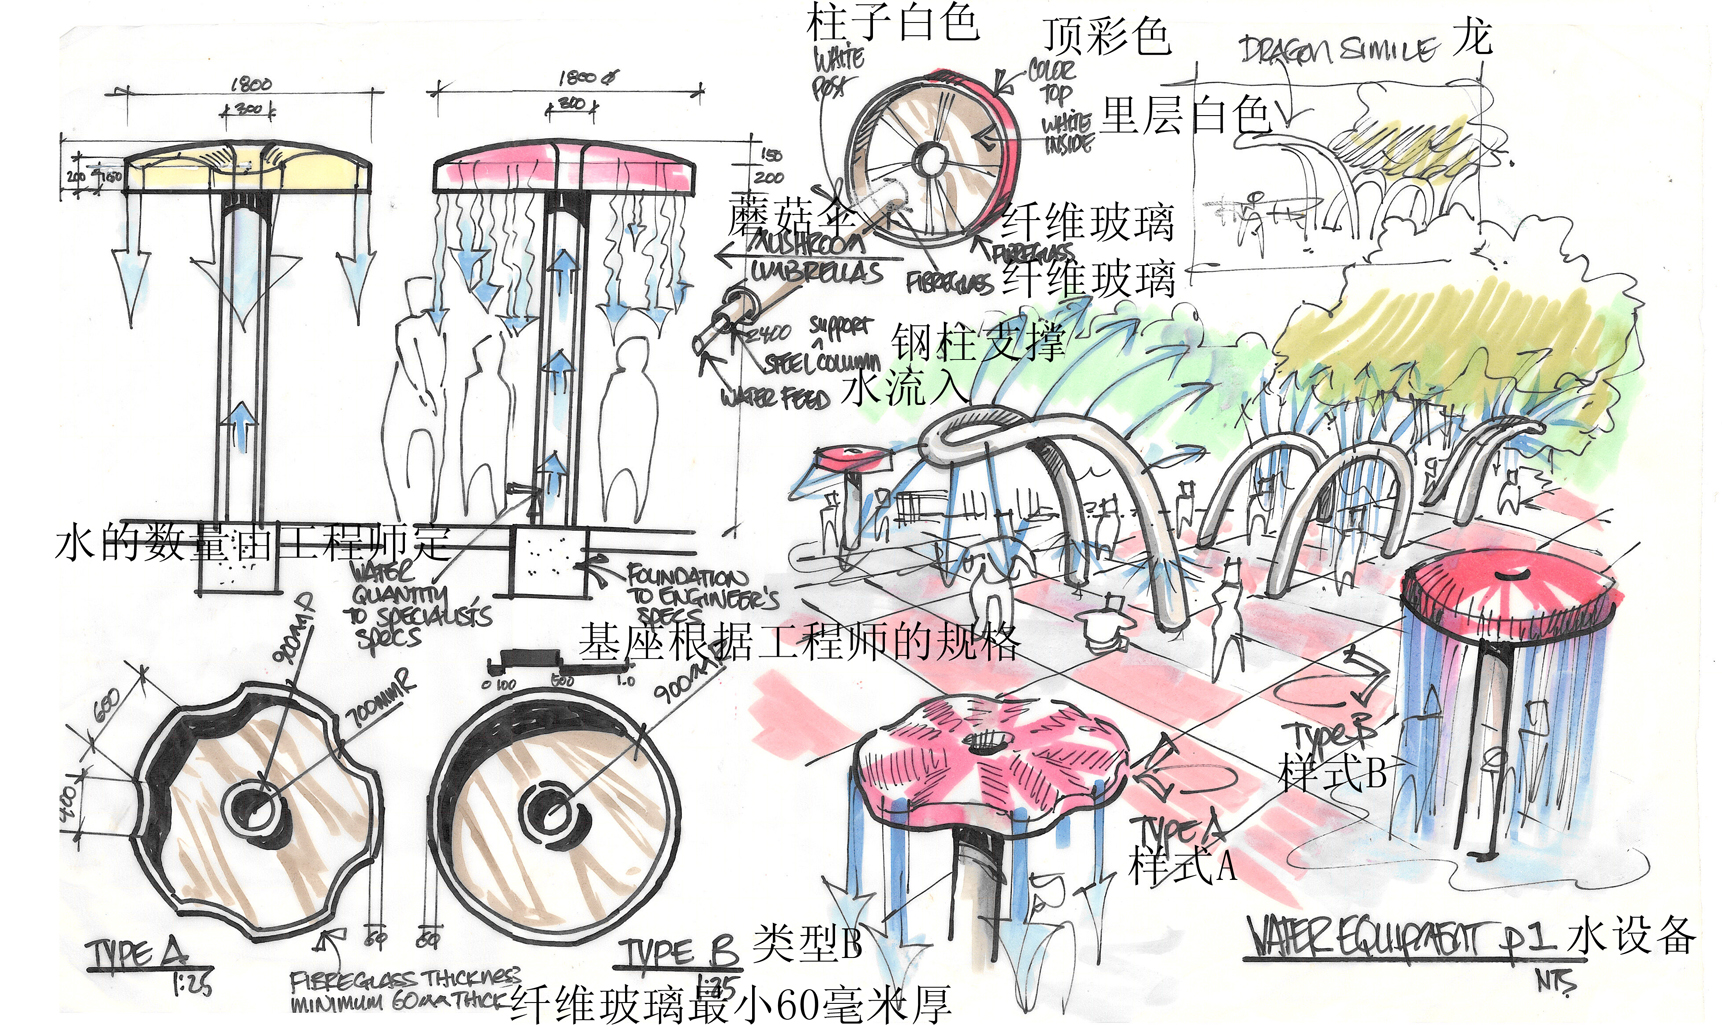 柱子白色
WHITE
POST
顶彩色
COLOR
TOP
WHITE
INSIDE
里层白色
DRAGON SIMILE
龙
1800
300
1800 ϕ
300
200
150
150
200
蘑菇伞
MUSHROOM
UMBRELLAS
纤维玻璃
FIBREGLASS
FIBREGLASS
纤维玻璃
2400
SUPPORT
STEEL COLUMN
钢柱支撑
WATER FEED
水流入
水的数量由工程师定
WATER
QUANTITY
TO SPECIALISTS
SPECS
FOUNDATION
TO ENGINEER'S
SPECS
基座根据工程师的规格
0 100 500 1.0
900mmR
700mmR
900mmR
600
400
60
60
TYPE A
1:25
TYPE B
1:25
类型B
FIBREGLASS THICKNESS
MINIMUM 60mm THICK
纤维玻璃最小60毫米厚
TYPE A
样式A
TYPE B
样式B
WATER EQUIPMENT p1
水设备
NTS